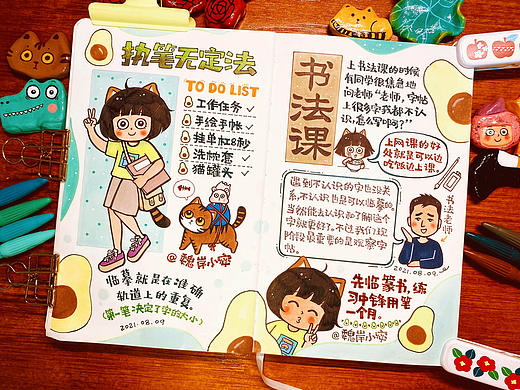 执笔无定法
TO DO LIST
工作任务
手绘手帐
挂单杠8秒
洗枕套
猫罐头
@魏岸小蜜
临摹就是在准确
轨道上的重复。
(第一笔决定了字的大小)
2021.08.09
书法课
上书法课的时候
有同学很焦急地
向老师“老师,字帖
上很多字我都不认
识,怎么写啊?”
上网课的好
处就是可以边
吃饭边上课。
遇到不认识的字也没关
系,不认识也是可以临摹的。
当然能去认识和了解这个
字就更好了。不过我们现
阶段最重要的是观察字
帖。
书法老师
2021.08.09
先临篆书,练
习中锋用笔
一个月。
@魏岸小蜜